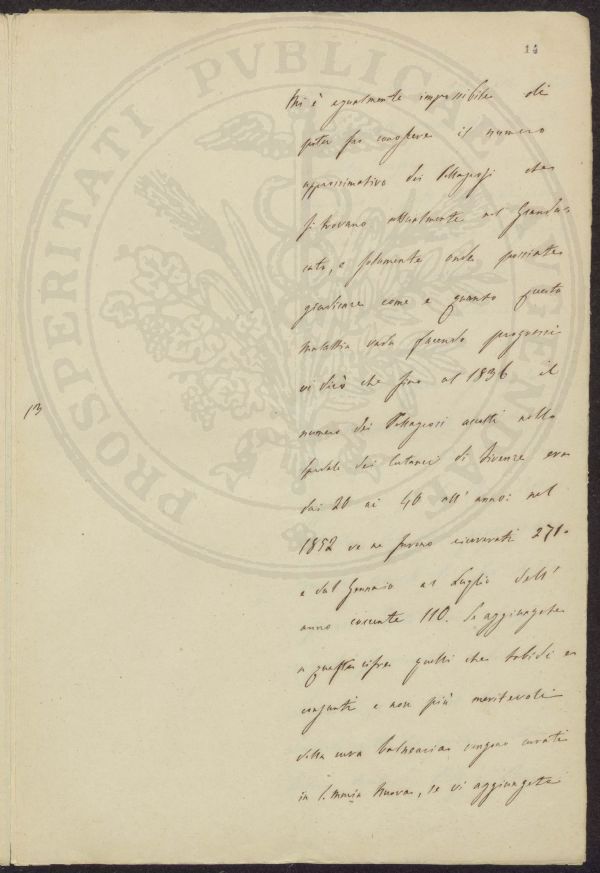 14
PROSPERITATI PVBLICAE A
Mi è egualmente impossibile di
poter far conoscere il numero
approssimativo dei Pellagrosi che
si trovano attualmente nel Grandu=
cato, e solamente onde possiate
giudicare come e quanto questa
malattia vada facendo progressi
vi dirò che fino al 1836 il
numero dei Pellagrosi accolti nello
spedale dei cutanei di Firenze era
dai 20 ai 40 all' anno: nel
1852 ve ne furono ricoverati 271.
e dal Gennaio al Luglio dell'
anno corrente 110. Se aggiungete
a questa cifra quelli che tabidi e
consunti e non più meritevoli
della cura balnearia vengono curati
in S. Maria Nuova, se vi aggiungete
13